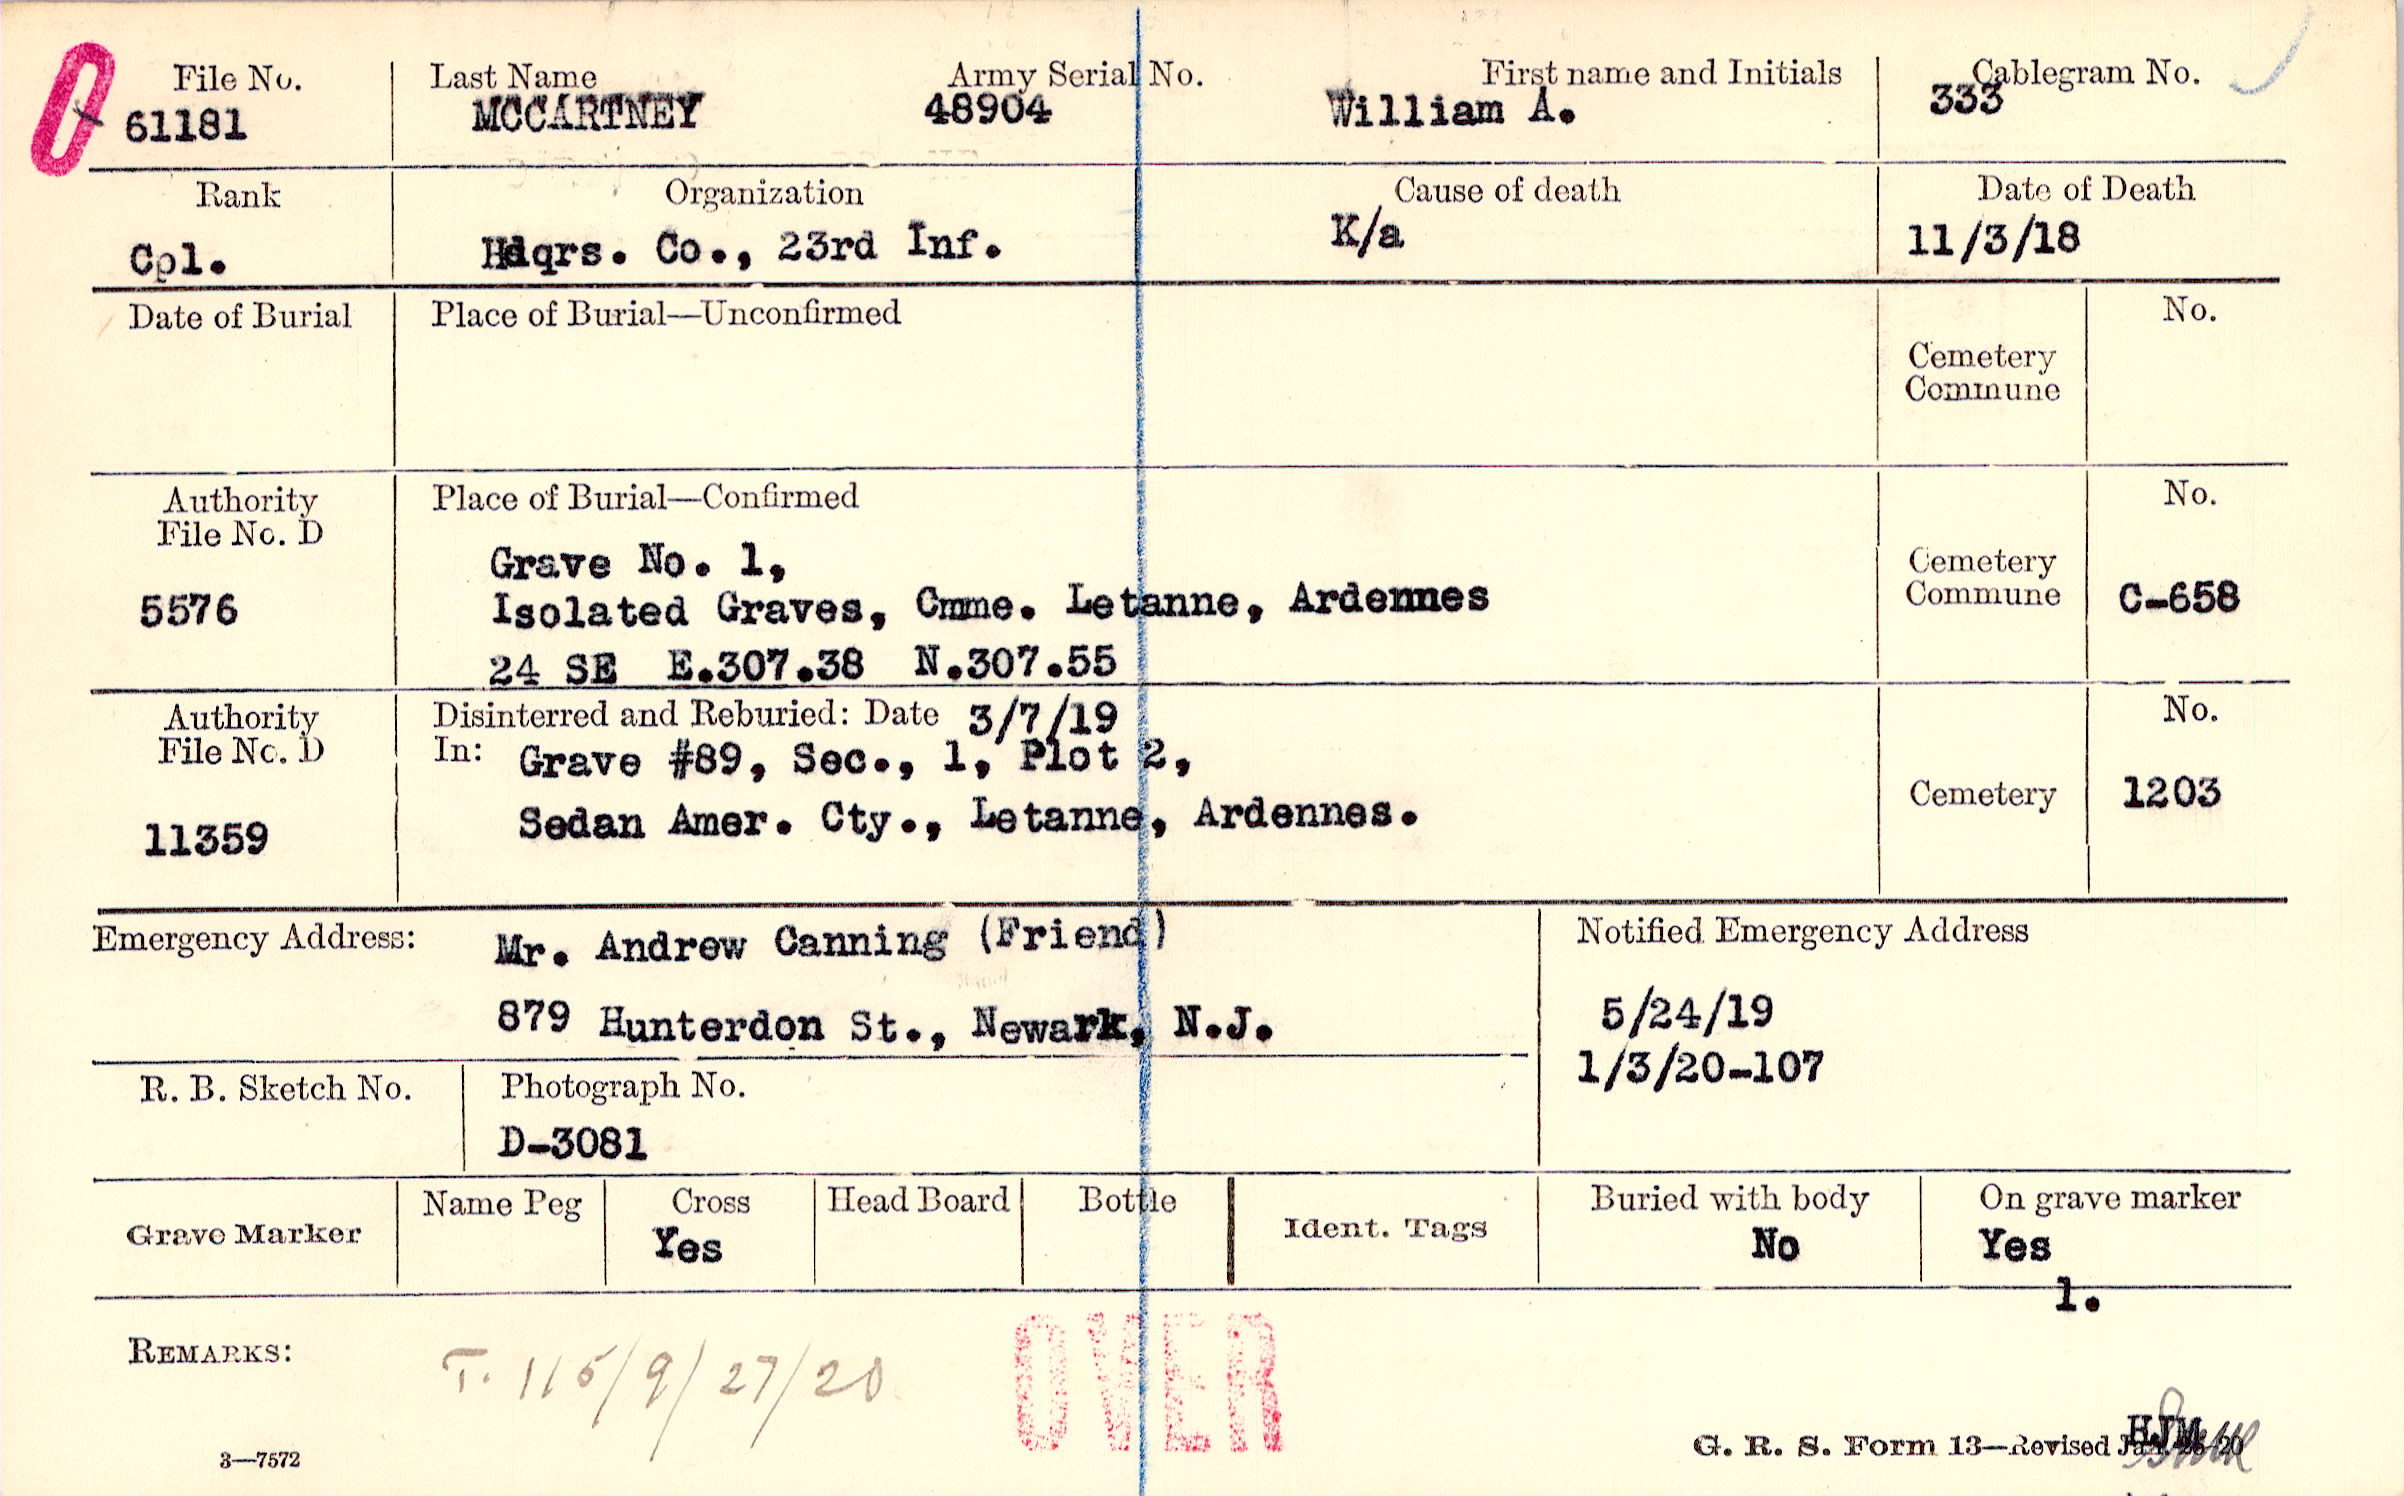 File No. Last Name Army Serial No. First name and Initials Cablegram No.
61181 MCCARTNEY 48904 William A. 333
Rank Organization Cause of death Date of Death
Cpl. Hdqrs. Co., 23rd Inf. K/a 11/3/18
Date of Burial Place of Burial—Unconfirmed No.
Cemetery
Commune
Authority Place of Burial—Confirmed No.
File No. D
Grave No. 1,
Cemetery
5576 Isolated Graves, Cmme. Letanne, Ardennes Commune C-658
24 SE E.307.38 N.307.55
Authority Disinterred and Reburied: Date 3/7/19 No.
File No. D In: Grave #89, Sec., 1, Plot 2,
Cemetery 1203
11359 Sedan Amer. Cty., Letanne, Ardennes.
Emergency Address: Mr. Andrew Canning (Friend) Notified Emergency Address
879 Hunterdon St., Newark, N.J. 5/24/19
1/3/20-107
R. B. Sketch No. Photograph No.
D-3081
Grave Marker Name Peg Cross Head Board Bottle Ident. Tags Buried with body On grave marker
Yes No Yes
1.
REMARKS: T. 115/9/27/20
OVER
HJM
3—7572 G. R. S. Form 13—Revised